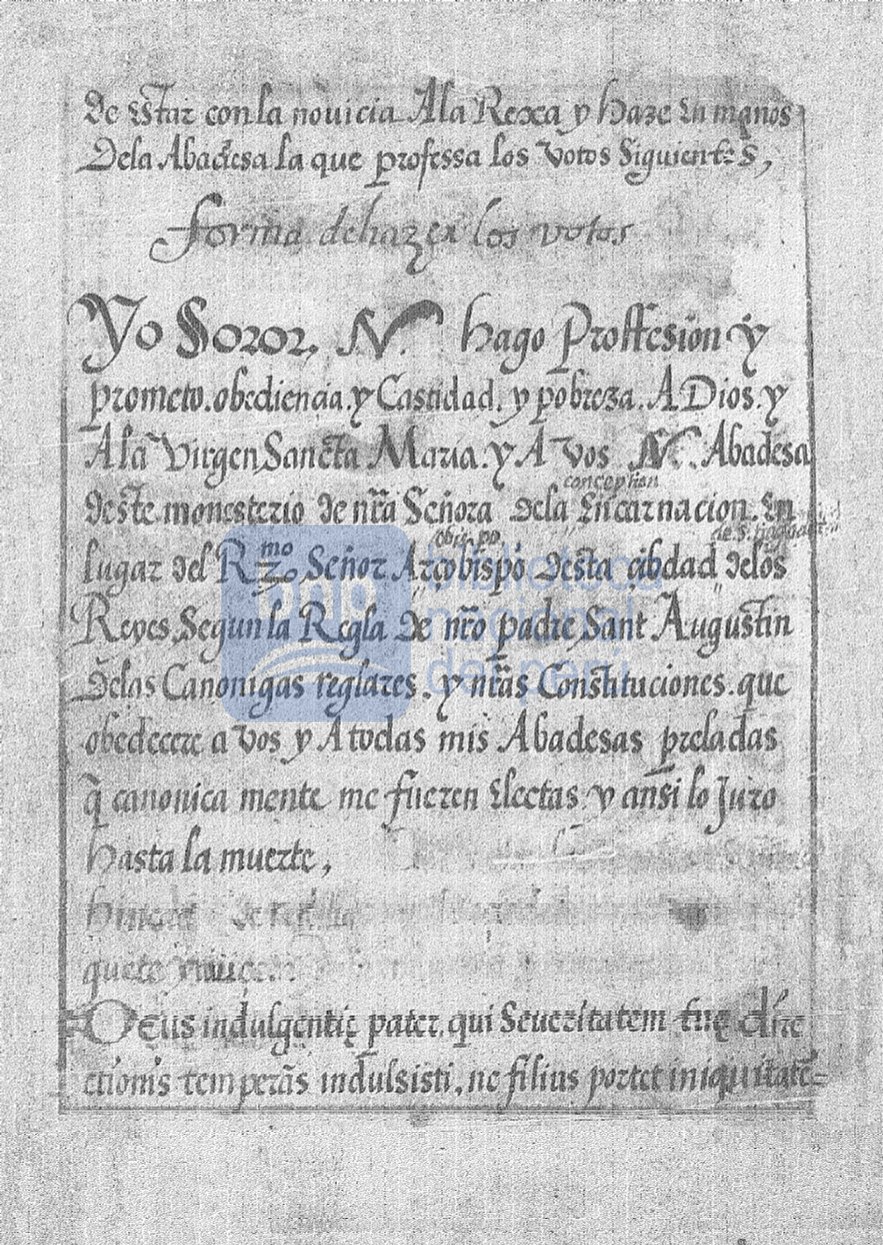 de estar con la novicia A la Rexa y haze En manos
Dela Abadesa la que professa los votos Siguientes,
forma de hazer los votos
Yo Soror, N. hago Proffesion y
prometo. obediencia. y Castidad. y pobreza. A Dios. y
A la Virgen Sancta Maria. y A vos N. Abadesa
conception
deste monesterio de nra Señora Dela Encarnacion. En
obispo
de S.
lugar del Rmo Señor Arçobispo desta cibdad delos
Reyes Segun la Regla De nro padre Sant Augustin
Delas Canonigas reglares. y nras Constituciones. que
obedecere a vos y A todas mis Abadesas preladas
q̃ canonica mente me fueren Electas y ansi lo Juro
hasta la muerte,
Deus indulgentię pater. qui Severitatem tuę dire
ctionis temperãs indulsisti. ne filius portet iniquitatẽ=
biblioteca
nacional
del perú
bnp